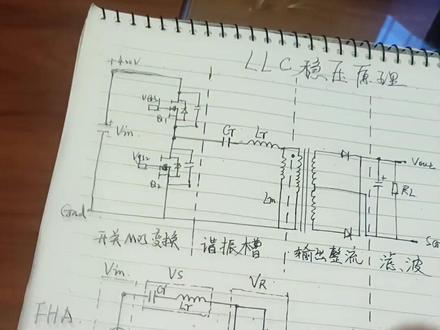 LLC 稳压原理
+400V
Vgs1
Q1
Cr Lr
Vout
Vin
Vgs2
Q2
Lm
RL
Gnd
开关MOS变换 谐振槽 输出整流 滤波
Vin VS VR
Cr
Lr
FHA